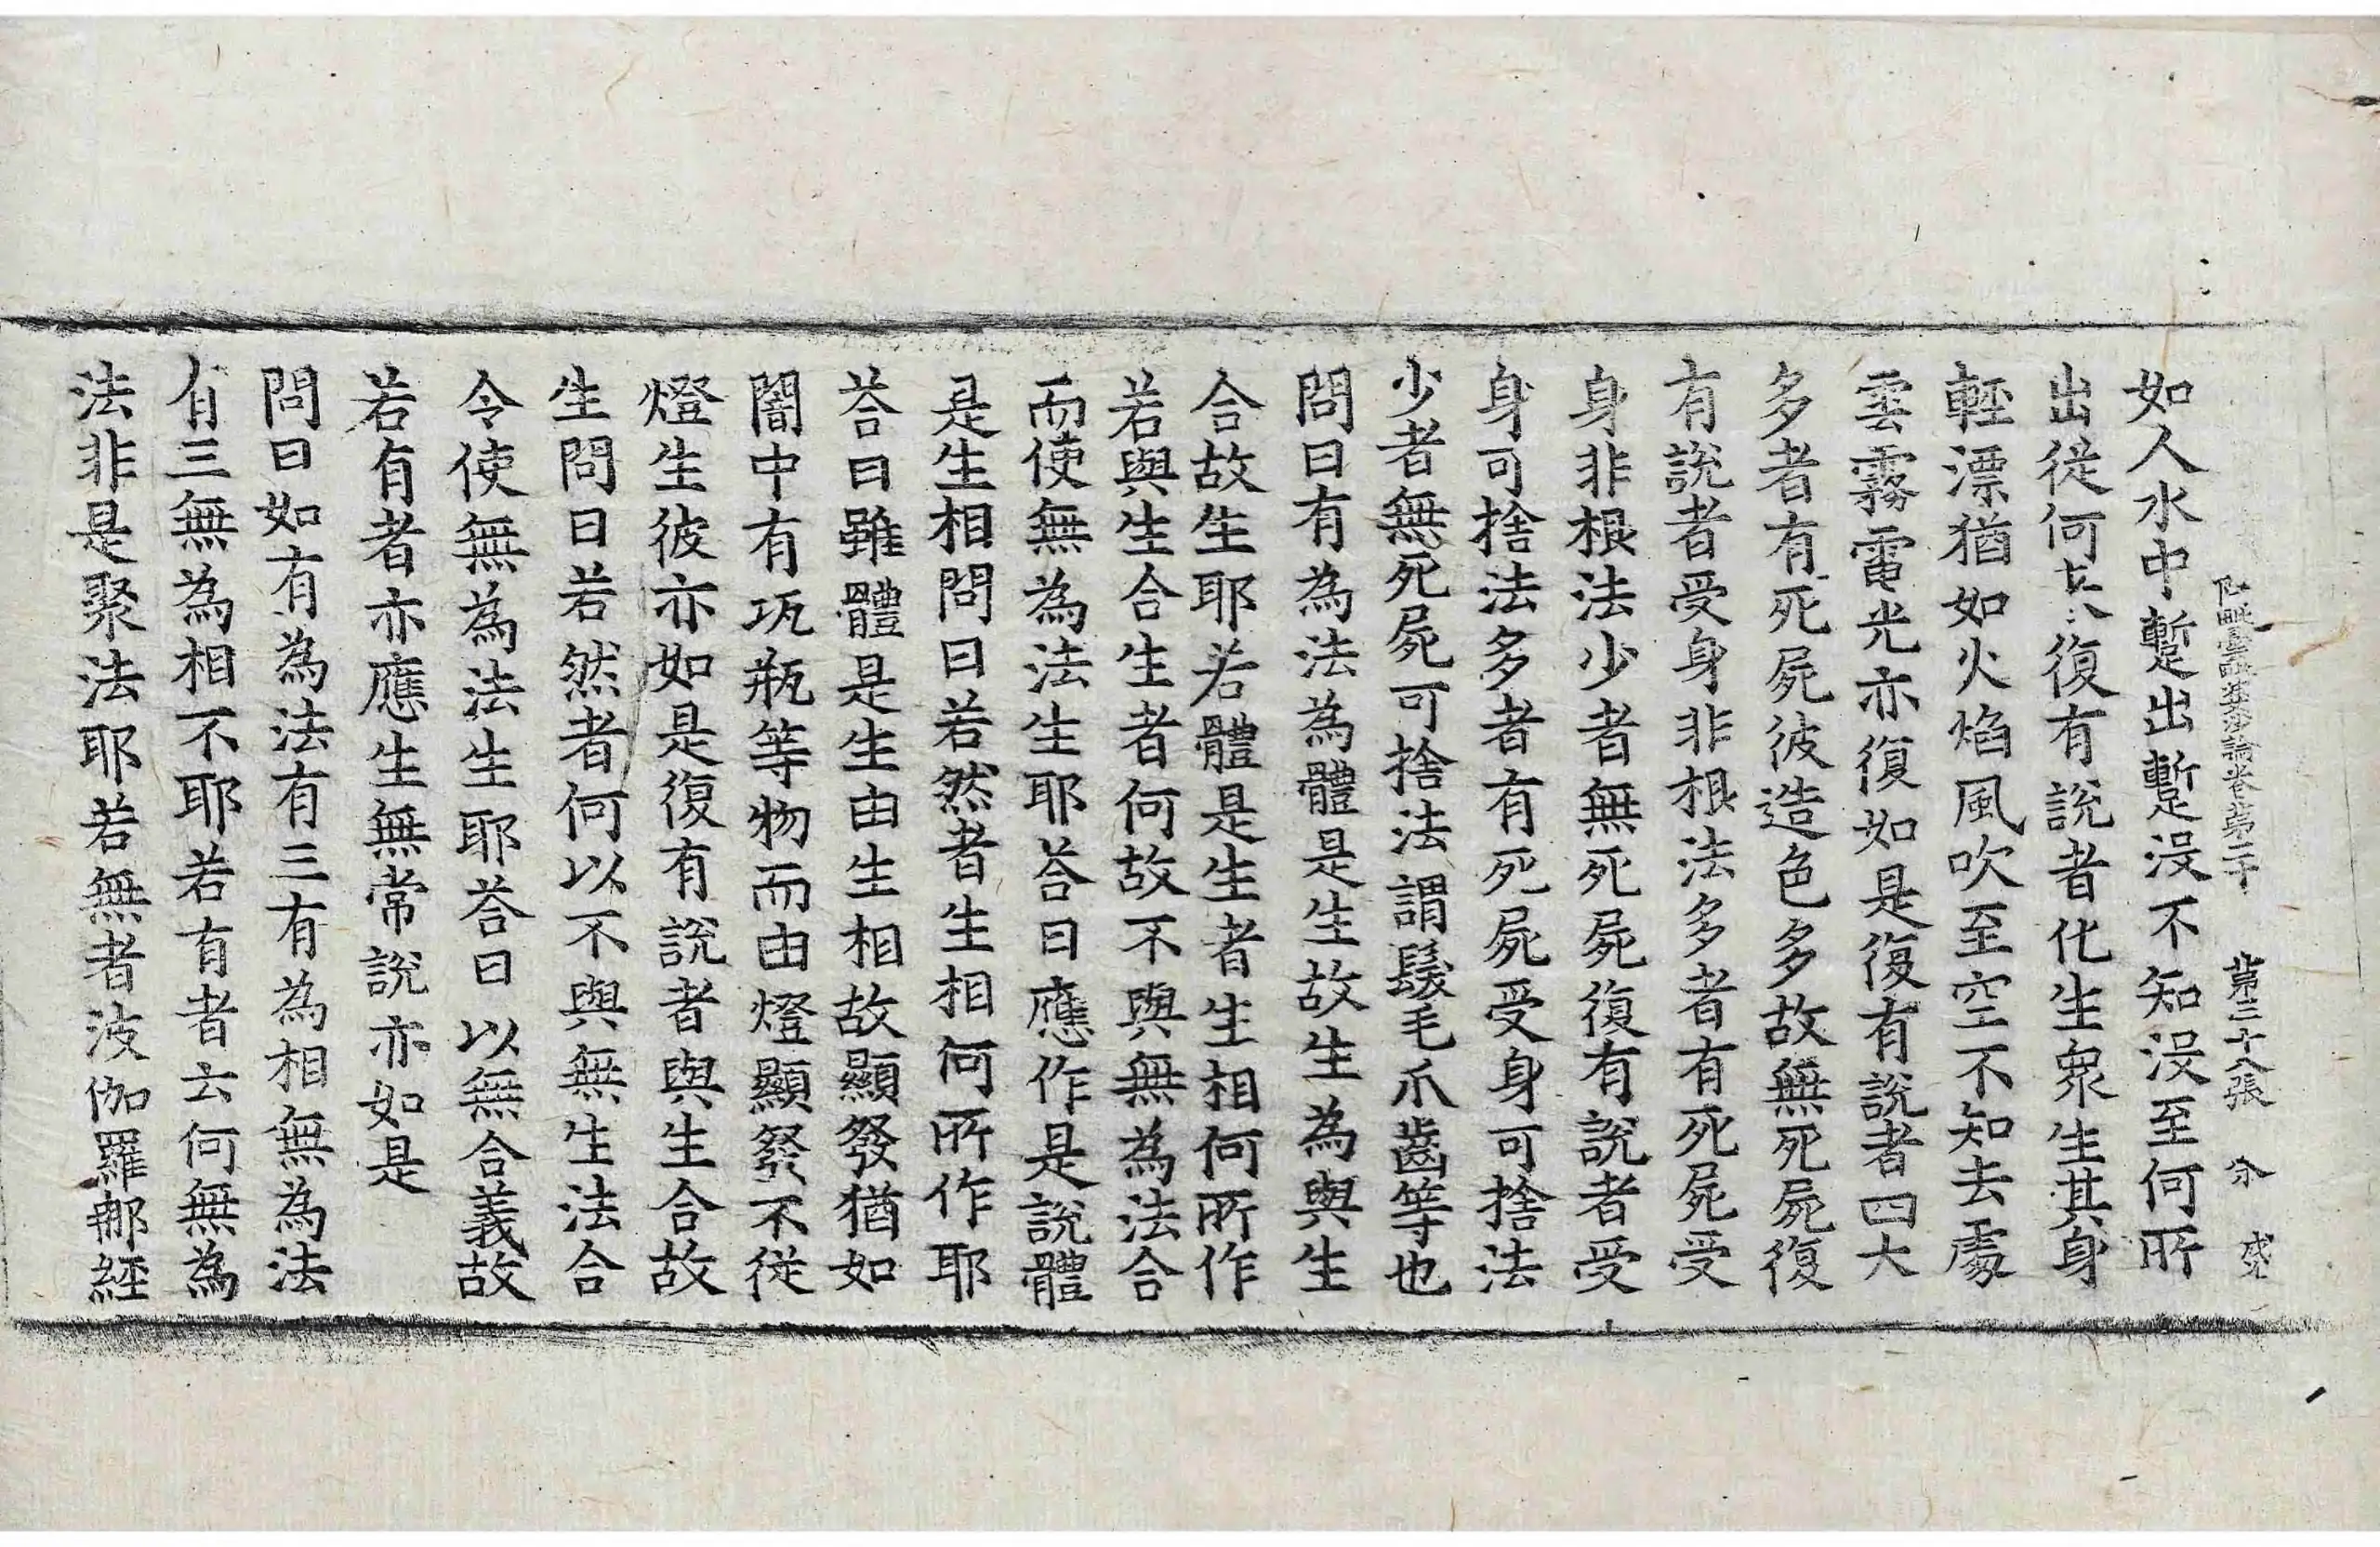 阿毗曇毗婆沙論卷第二十 第三十八張 分 盛
如人水中蹔出蹔没不知没至何所
出從何去復有說者化生衆生其身
輕漂猶如火焰風吹至空不知去處
雲霧電光亦復如是復有說者四大
多者有死屍彼造色多故無死屍復
有說者受身非根法多者有死屍受
身非根法少者無死屍復有說者受
身可捨法多者有死屍受身可捨法
少者無死屍可捨法謂髮毛爪齒等也
問曰有為法為體是生故生為與生
合故生耶若體是生者生相何所作
若與生合生者何故不與無為法合
而使無為法生耶荅曰應作是說體
是生相問曰若然者生相何所作耶
荅曰雖體是生由生相故顯發猶如
闇中有瓨瓶等物而由燈顯發不從
燈生彼亦如是復有說者與生合故
生問曰若然者何以不與無生法合
令使無為法生耶荅曰以無合義故
若有者亦應生無常說亦如是
問曰如有為法有三有為相無為法
有三無為相不耶若有者云何無為
法非是聚法耶若無者波伽羅那經